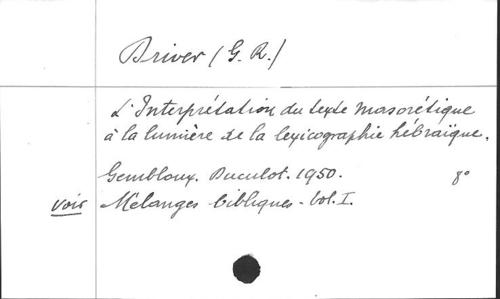 Driver (G. R.)
L'Interprétation du texte masorétique
à la lumière de la lexicographie hébraïque.
Gembloux. Duculot. 1950. 8°
voir Mélanges bibliques - Vol. I.